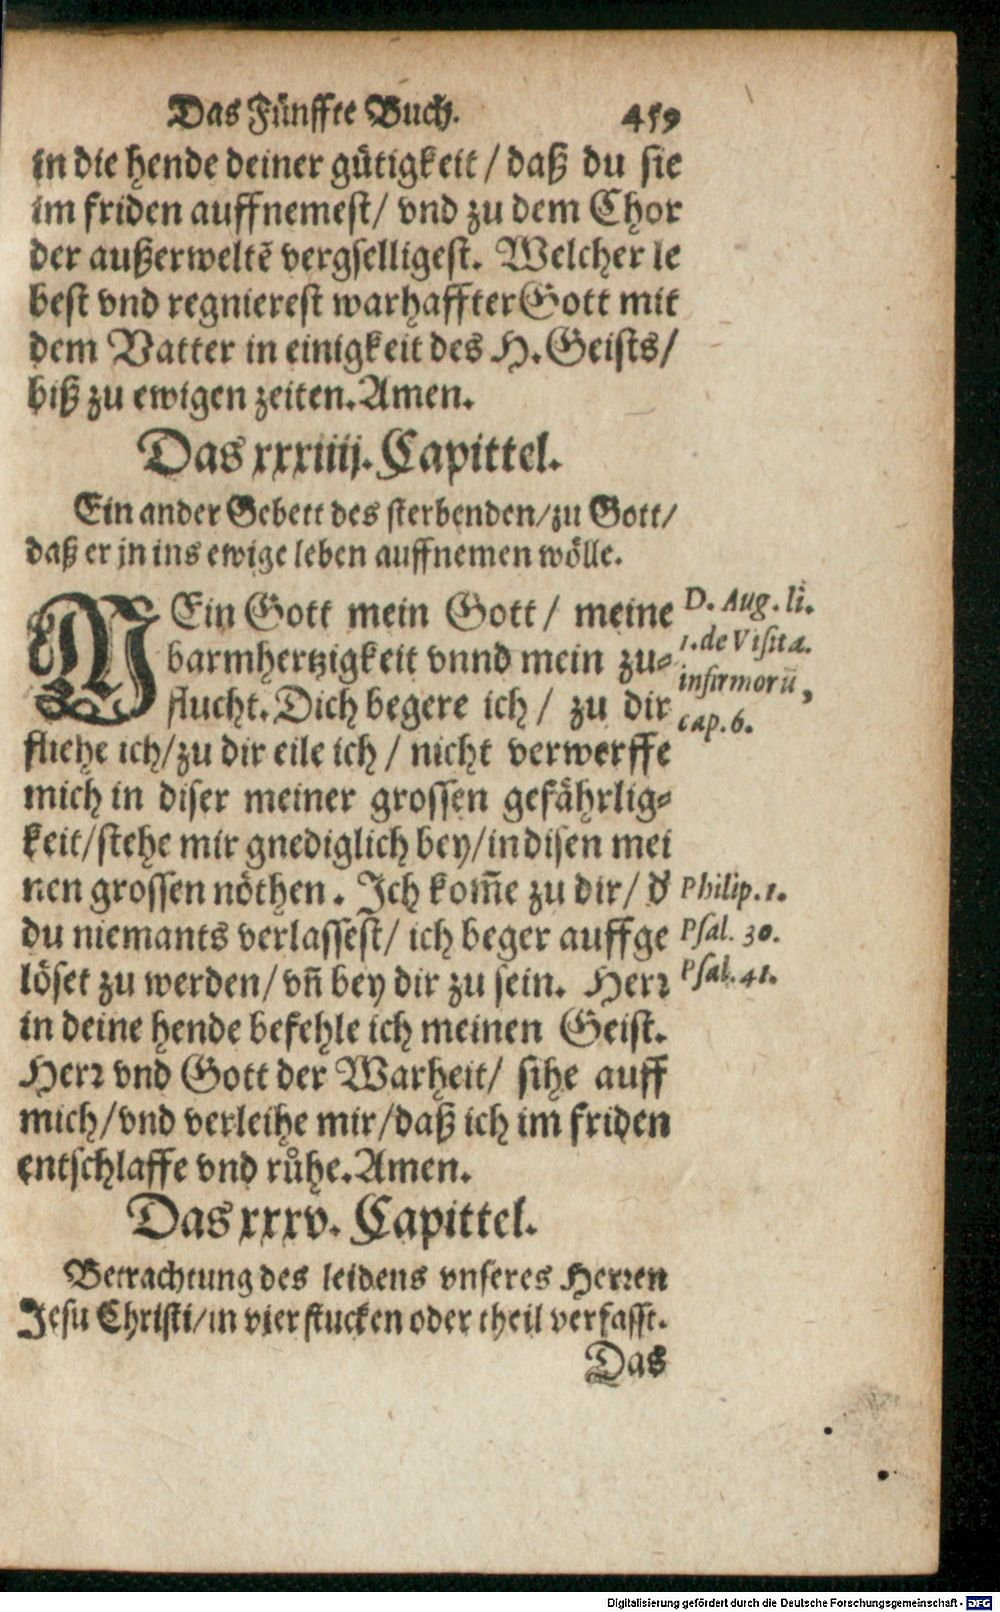 Das Fünffte Buch. 459
in die hende deiner gütigkeit / daß du sie
im friden auffnemest / vnd zu dem Chor
der außerweltẽ vergselligest. Welcher le
best vnd regnierest warhaffter Gott mit
dem Vatter in einigkeit des H. Geists /
biß zu ewigen zeiten. Amen.
Das xxxiiij. Capittel.
Ein ander Gebett des sterbenden / zu Gott /
daß er jn ins ewige leben auffnemen wölle.
MEin Gott mein Gott / meine
barmhertzigkeit vnnd mein zu-
flucht. Dich begere ich / zu dir
fliehe ich / zu dir eile ich / nicht verwerffe
mich in diser meiner grossen gefährlig-
keit / stehe mir gnediglich bey / in disen mei
nen grossen nöthen. Ich kom̃e zu dir / d'
du niemants verlassest / ich beger auffge
löset zu werden / vñ bey dir zu sein. Herr
in deine hende befehle ich meinen Geist.
Herr vnd Gott der Warheit / sihe auff
mich / vnd verleihe mir / daß ich im friden
entschlaffe vnd růhe. Amen.
D. Aug. li.
1. de Visita.
infirmorũ,
cap. 6.
Philip. 1.
Psal. 30.
Psal. 41.
Das xxxv. Capittel.
Betrachtung des leidens vnseres Herren
Jesu Christi / in vier stucken oder theil verfasst.
Das
Digitalisierung gefördert durch die Deutsche Forschungsgemeinschaft - DFG